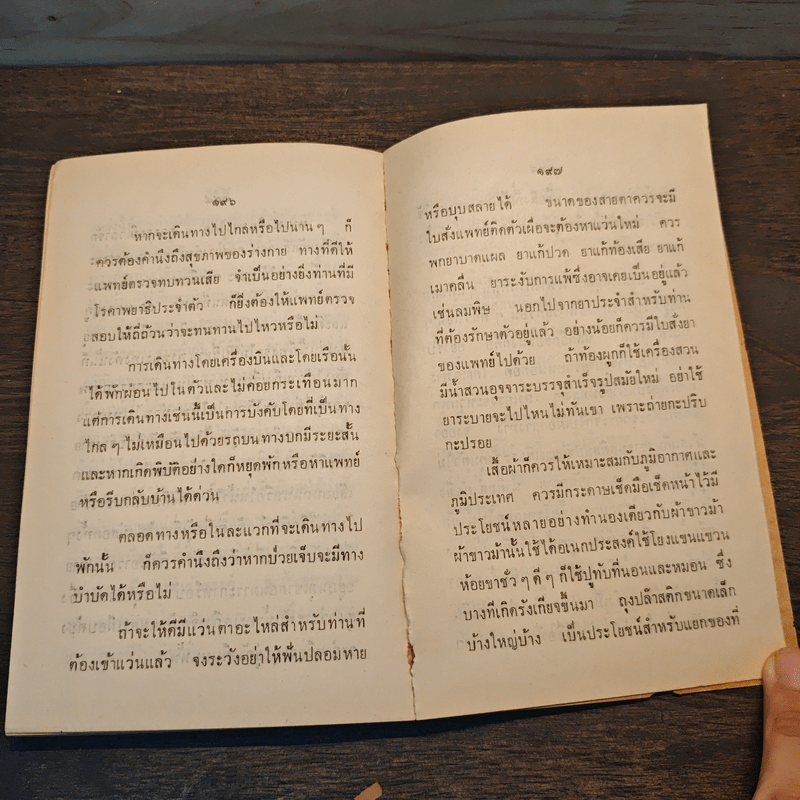 ๑๙๖
หากจะเดินทางไปไกลหรือไปนาน ๆ ก็
ควรต้องคำนึงถึงสุขภาพของร่างกาย ทางที่ดีให้
แพทย์ตรวจทบทวนเสีย จำเป็นอย่างยิ่งท่านที่มี
โรคาพยาธิประจำตัว ก็ยิ่งต้องให้แพทย์ตรวจ
สอบให้ถี่ถ้วนว่าจะทนทานไปไหวหรือไม่
การเดินทางโดยเครื่องบินและโดยเรือนั้น
ได้พักผ่อนไปในตัวและไม่ค่อยกระเทือนมาก
แต่การเดินทางเช่นนี้เป็นการบังคับโดยที่เป็นทาง
ไกล ๆ ไม่เหมือนไปด้วยรถบนทางบกมีระยะสั้น
และหากเกิดพิบัติอย่างใดก็หยุดพักหรือหาแพทย์
หรือรีบกลับบ้านได้ด่วน
ตลอดทางหรือในละแวกที่จะเดินทางไป
พักนั้น ก็ควรคำนึงถึงว่าหากป่วยเจ็บจะมีทาง
บำบัดได้หรือไม่
ถ้าจะให้ดีมีแว่นตาอะไหล่สำหรับท่านที่
ต้องเข้าแว่นแล้ว จงระวังอย่าให้ฟันปลอมหาย
๑๙๗
หรือบุบสลายได้ ขนาดของสายตาควรจะมี
ใบสั่งแพทย์ติดตัวเผื่อจะต้องหาแว่นใหม่ ควร
พกยาบาดแผล ยาแก้ปวด ยาแก้ท้องเสีย ยาแก้
เมาคลื่น ยาระงับการแพ้ซึ่งอาจเคยเป็นอยู่แล้ว
เช่นลมพิษ นอกไปจากยาประจำสำหรับท่าน
ที่ต้องรักษาตัวอยู่แล้ว อย่างน้อยก็ควรมีใบสั่งยา
ของแพทย์ไปด้วย ถ้าท้องผูกก็ใช้เครื่องสวน
มีน้ำสวนอุจจาระบรรจุสำเร็จรูปสมัยใหม่ อย่าใช้
ยาระบายจะไปไหนไม่ทันเขา เพราะถ่ายกะปริบ
กะปรอย
เสื้อผ้าก็ควรให้เหมาะสมกับภูมิอากาศและ
ภูมิประเทศ ควรมีกระดาษเช็ดมือเช็ดหน้าไว้มี
ประโยชน์หลายอย่างทำนองเดียวกับผ้าขาวม้า
ผ้าขาวม้านั้นใช้ได้อเนกประสงค์ใช้โยงแขนแขวน
ห้อยขาชั่ว ๆ ดี ๆ ก็ใช้ปูทับที่นอนและหมอน ซึ่ง
บางที่เกิดรังเกียจขึ้นมา ถุงปล๊าสติกขนาดเล็ก
บ้างใหญ่บ้าง เป็นประโยชน์สำหรับแยกของที่